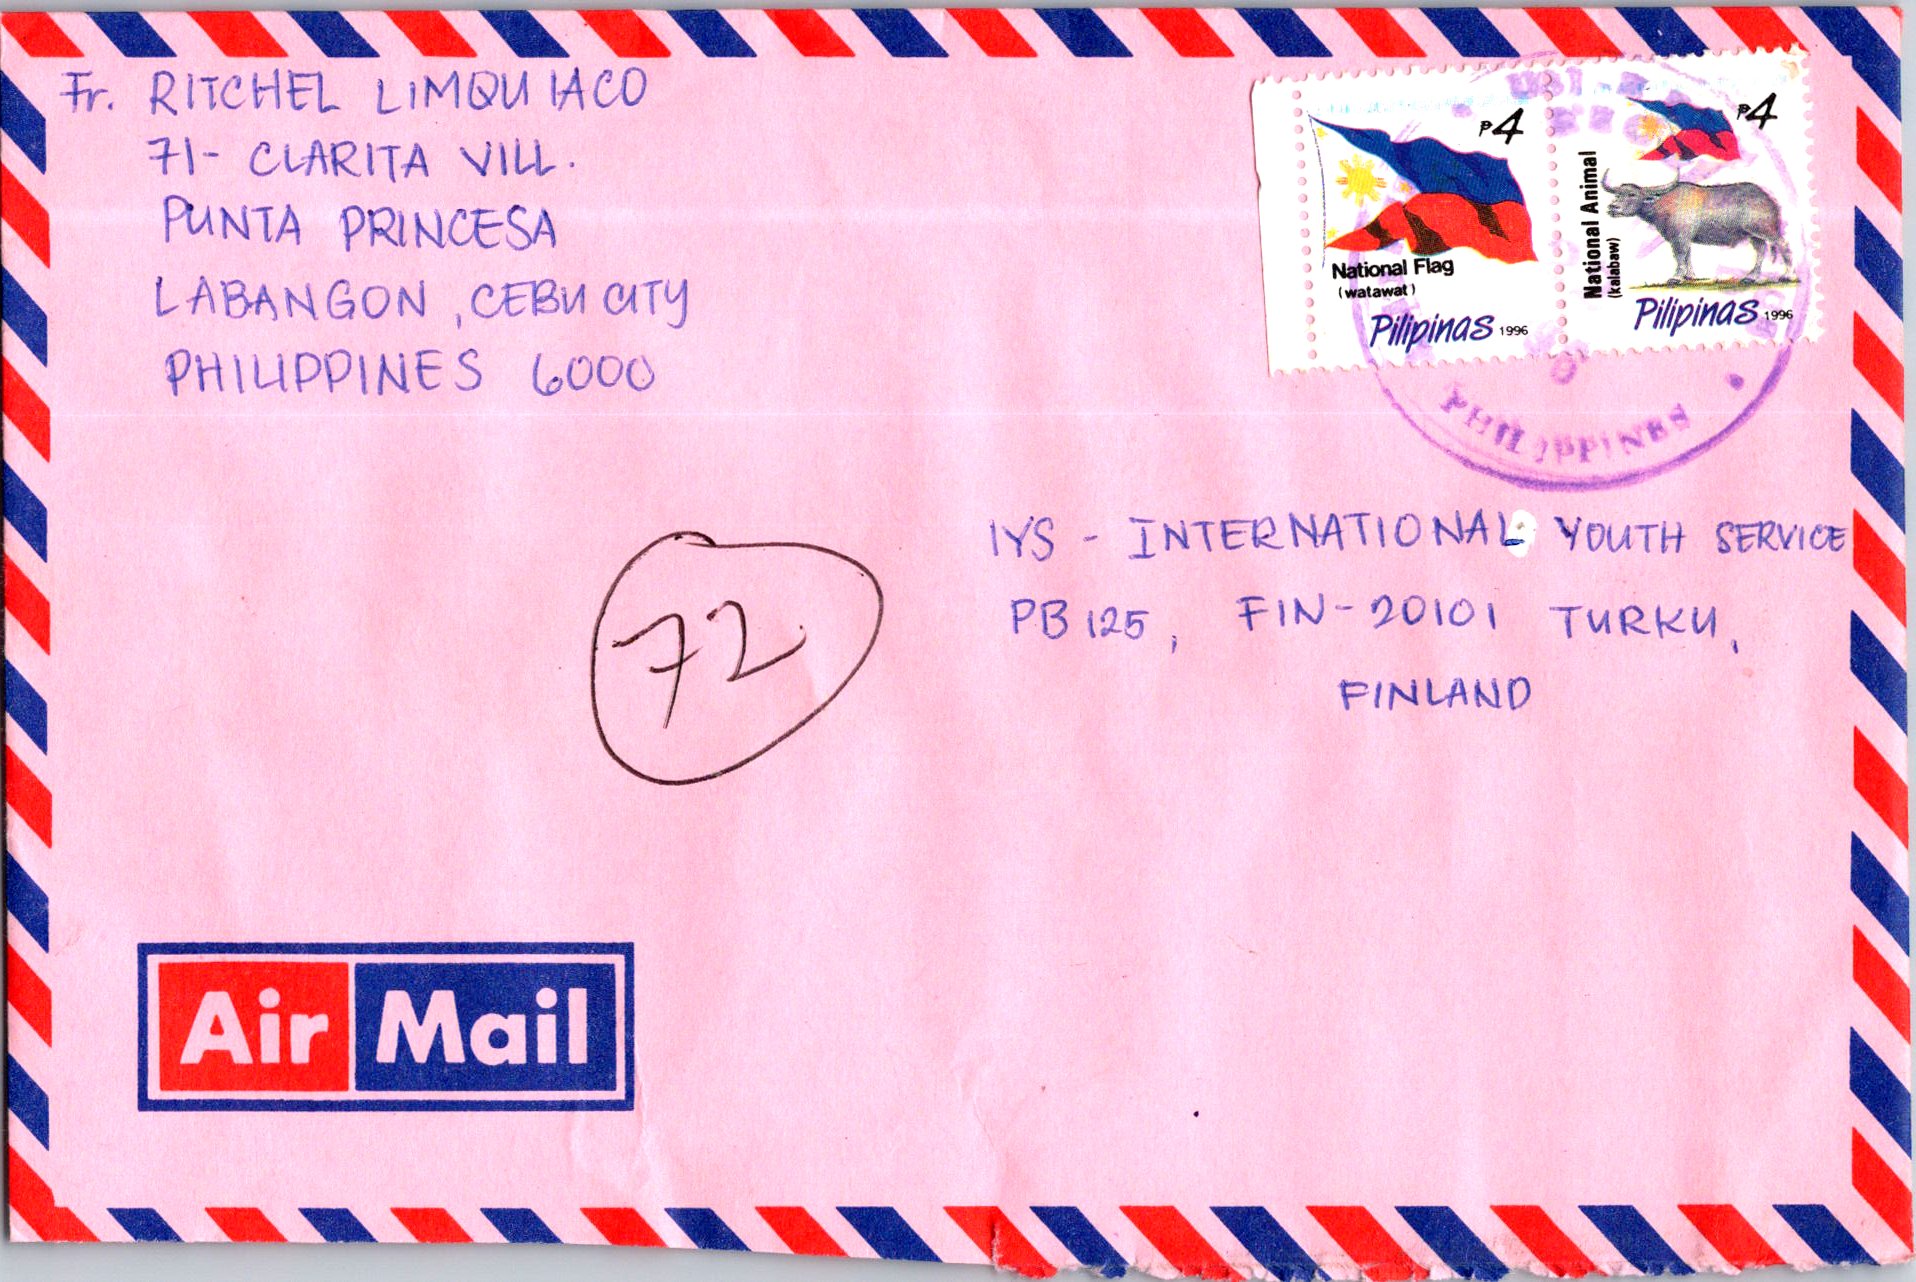 Fr. RITCHEL LIMQUIACO
71- CLARITA VILL.
PUNTA PRINCESA
LABANGON, CEBU CITY
PHILIPPINES 6000
₱4
National Flag
(watawat)
Pilipinas 1996
₱4
National Animal
(kalabaw)
Pilipinas 1996
PHILIPPINES
IYS - INTERNATIONAL YOUTH SERVICE
PB 125, FIN-20101 TURKU,
FINLAND
72
Air Mail